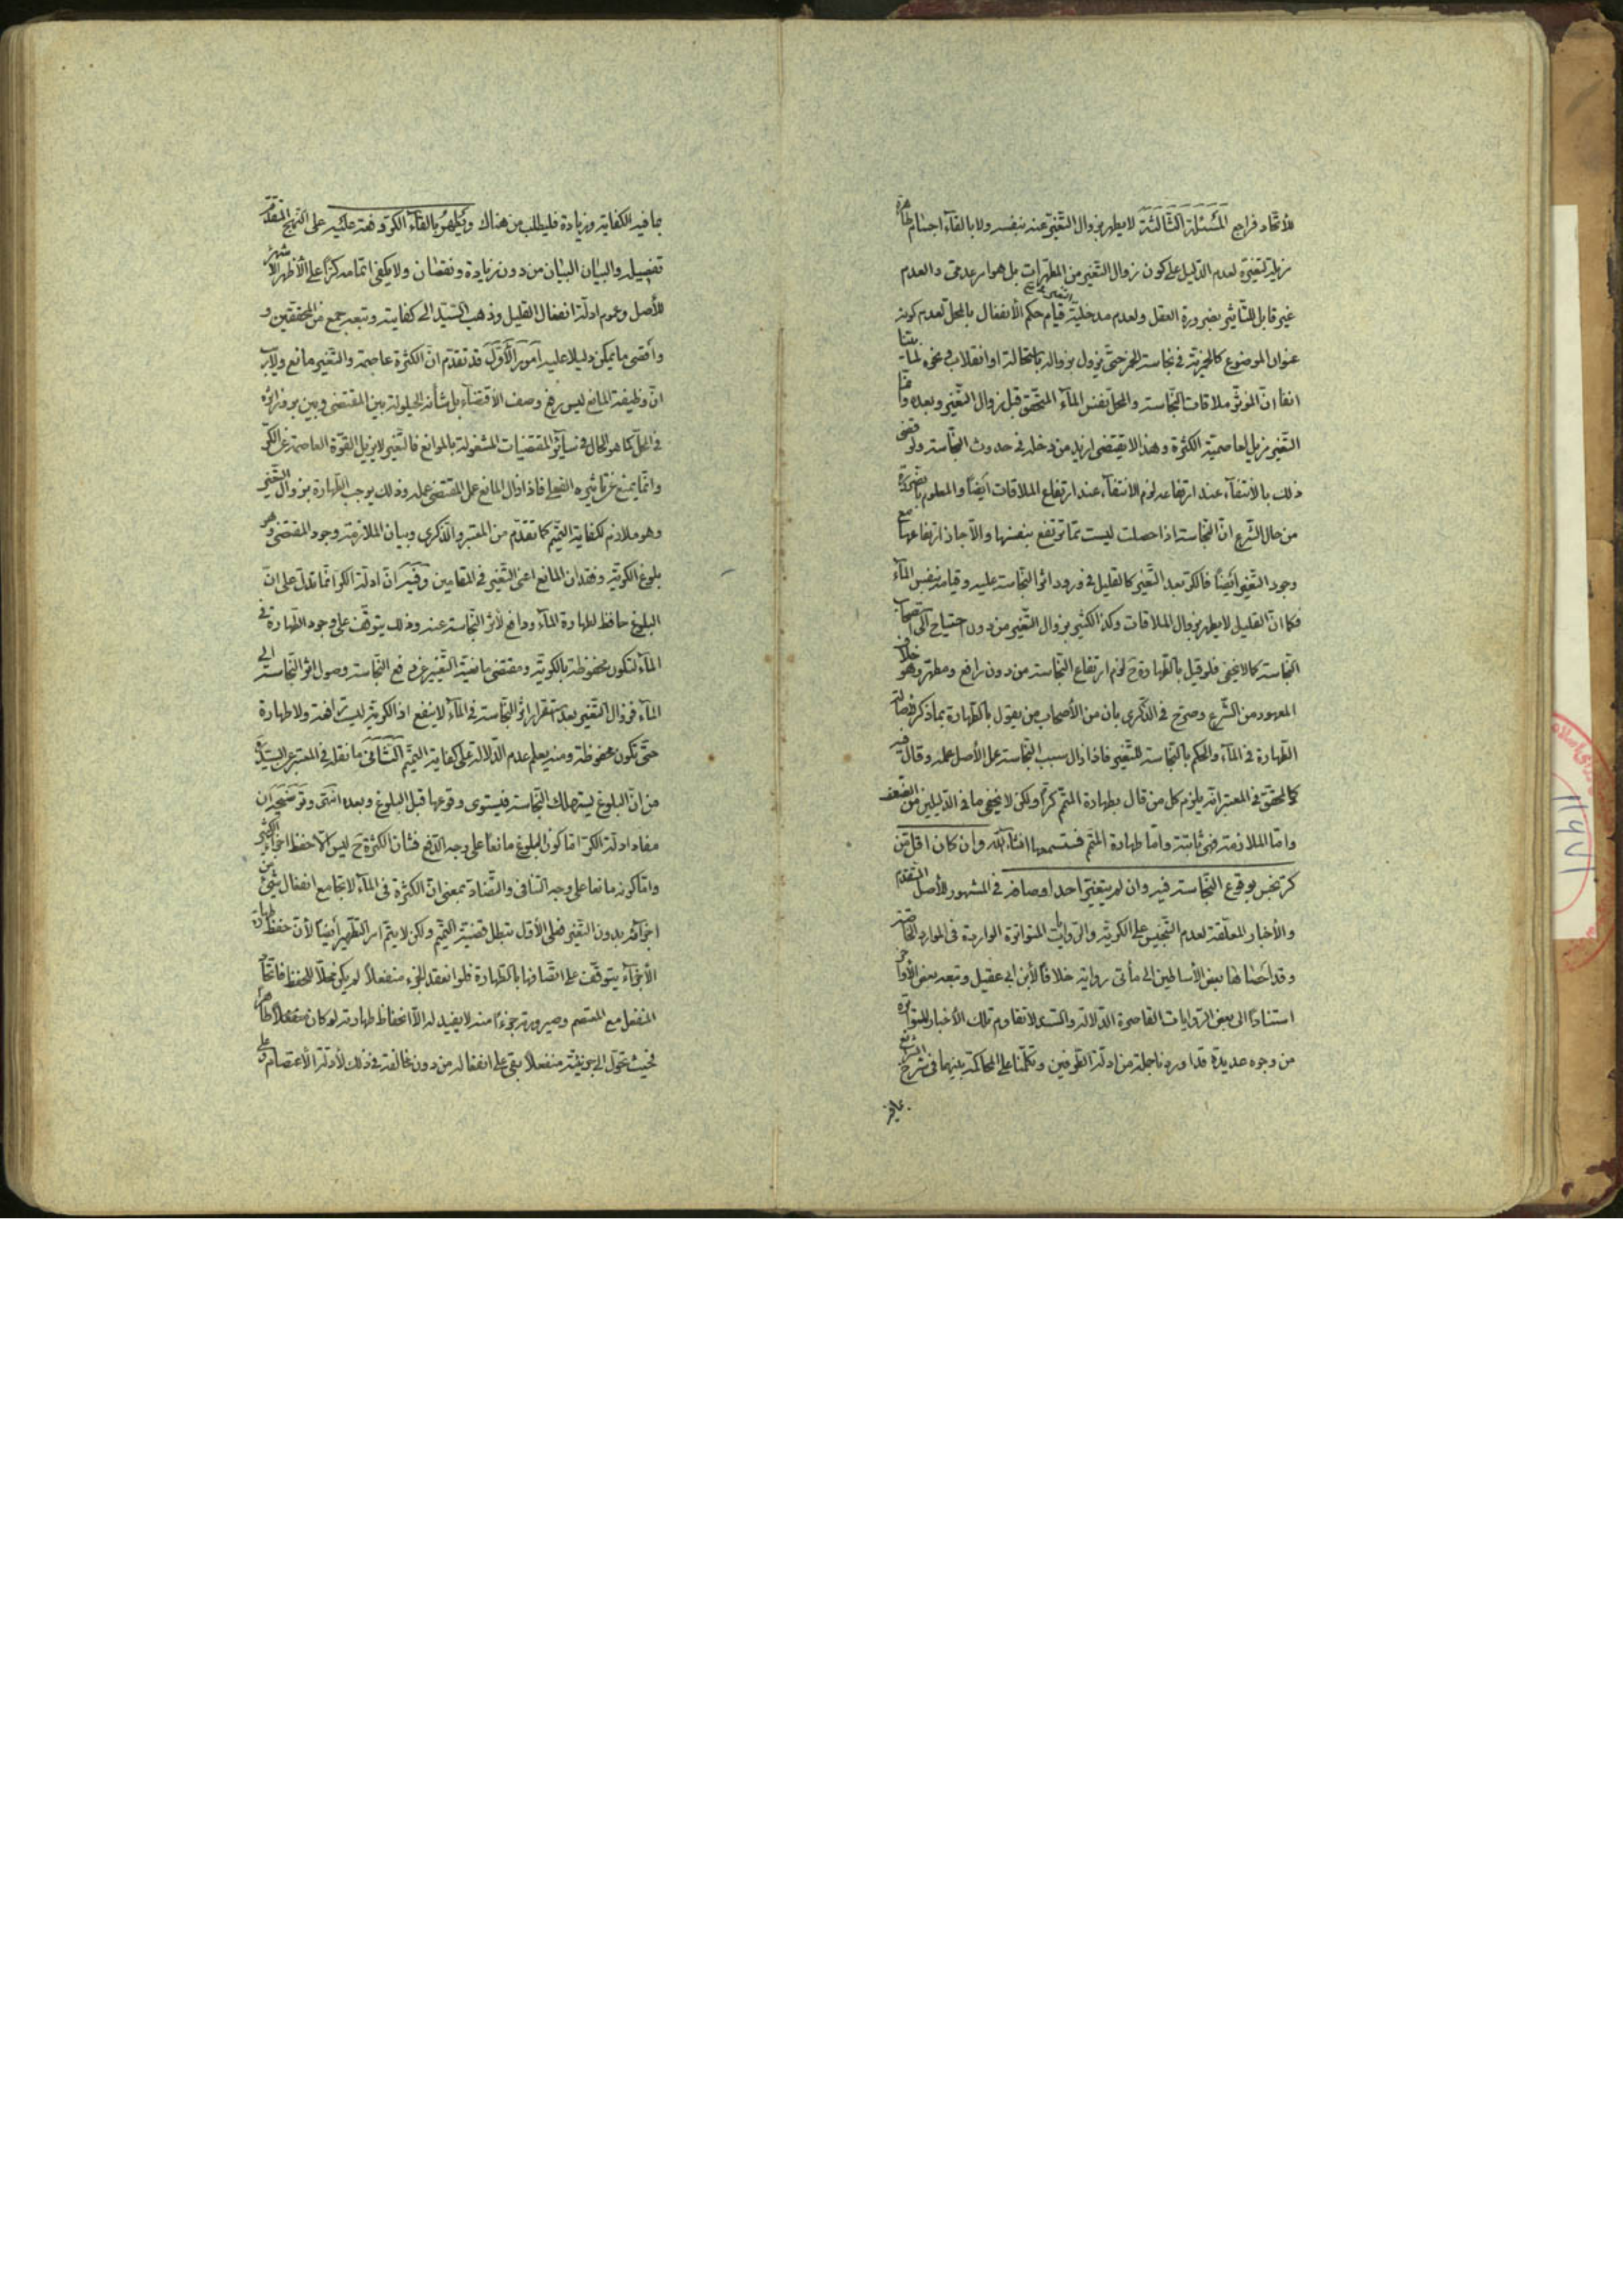 للأتحاد فراجع المسئلة الثالثة لا يطهر بزوال التغير عنه بنفسه ولا بالقآء اجسام طاهرة
مزيلة لتغيره لعدم الدليل على كون زوال التغير من المطهرات بل هو امر عدمى والعدم
غير قابل للتأثير بضرورة العقل ولعدم مدخلية التغير فى قيام حكم الأنفعال بالمحل لعدم كونه
عنوان الموضوع كالخمرية فى نجاسة الخمر حتى يزول بزواله باستحالة او انقلاب ونحوه لما بينا
انفا ان المؤثر ملاقات النجاسة والمحل نفس المآء المتحقق قبل زوال التغير وبعده وانما
التغير مزيل لعاصمية الكثرة وهذا لا يقتضى ازيد من دخله فى حدوث النجاسة ولو قضى
ذلك بالأنتفآء عند ارتفاعه لزم الأنتفآء عند ارتفاع الملاقات أيضاً والمعلوم بالضرورة
من حال الشرع ان النجاسة اذا حصلت ليست مما ترتفع بنفسها والا جاز ارتفاعها مع
وجود التغير أيضاً فالكر بعد التغير كالقليل فى ورود اثر النجاسة عليه وقيامه بنفس المآء
فكما ان القليل لا يطهر بزوال الملاقات وكذا الكثير بزوال التغير من دون احتياج الى استصحاب
النجاسة كما لا يخفى فلو قيل بالطهارة ح لزم ارتفاع النجاسة من دون رافع ومطهر وهو خلاف
المعهود من الشرع وصرح فى الذكرى بان من الأصحاب من يقول بالطهارة بما ذكر لأصالة
الطهارة فى المآء والحكم بالنجاسة للتغير فاذا زال سبب النجاسة عمل الأصل عمله وقال فيه
كالمحقق فى المعتبر انه يلزم كل من قال بطهارة المتمم كراً ولكن لا يخفى ما فى الدليلين من الضعف
واما الملازمة فهى ثابتة واما طهارة المتمم فستسمعها انشآء الله وان كان اقل من
كر نجس بوقوع النجاسة فيه وان لم يتغير احد اوصافه فى المشهور للأصل المتقدم
والأخبار المعلقة لعدم التنجيس على الكرية والروايات المتواترة الواردة فى الموارد الخاصة
وقد احصاها بعض الأساطين الى مأتى رواية خلافاً لأبن ابى عقيل وتبعه بعض الأواخر
استناداً الى بعض الروايات القاصرة الدلالة والسند لا تقاوم تلك الأخبار المتواترة
من وجوه عديدة قد اوردنا جملة من ادلة الطرفين وتكلمنا على المحاكمة بينهما فى شرح الشرايع
بما فيه
بما فيه الكفاية وزيادة فليطلب من هناك ويطهر بالقآء الكر دفعة عليه على النهج المتقدم
تفصيله والبيان البيان من دون زيادة ونقصان ولا يكفى اتمامه كراً على الأظهر الأشهر
للأصل وعموم ادلة انفعال القليل وذهب السيد الى كفايته وتبعه جمع من المحققين و
وأقصى ما يمكن دليلا عليه امور الأول قد تقدم ان الكثرة عاصمة والتغير مانع ولا ريب
ان وظيفة المانع ليس رفع وصف الأقتضآء بل شأنه الحيلولة بين المقتضى وبين بروز اثره
فى المحل كما هو الحال فى سآئر المقتضيات المشغولة بالموانع فالتغير لا يزيل القوة العاصمة عن الكر
وانما يمنع عن تأثيره الفعلى فاذا زال المانع عمل المقتضى عمله وذلك يوجب الطهارة بزوال التغير
وهو ملازم لكفاية التتميم كما تقدم من المعتبر والذكرى وبيان الملازمة وجود المقتضى وهو
بلوغ الكرية وفقدان المانع اعنى التغير فى المقامين وفيه ان ادلة الكر انما تدل على ان
البلوغ حافظ لطهارة المآء ودافع لأثر النجاسة عنه وذلك يتوقف على وجود الطهارة فى
المآء لتكون محفوظة بالكرية ومقتضى مانعية التغير عدم دفع النجاسة وصول اثر النجاسة الى
المآء فزوال التغير بعد استقرار اثر النجاسة فى المآء لا ينفع اذ الكرية ليست رافعة ولا طهارة
حتى تكون محفوظة ومنه يعلم عدم الدلالة على كفاية التتميم الثانى ما نقله فى المعتبر عن السيد
من ان البلوغ يستهلك النجاسة فيستوى وقوعها قبل البلوغ وبعده انتهى وتوضيحه ان
مفاد ادلة الكر اما كون البلوغ مانعاً على وجه الدفع فشأن الكثرة ح ليس الا حفظ اجزآء الكثير
واما كونه مانعا على وجه التنافى والتضاد بمعنى ان الكثرة فى المآء لا تجامع انفعال شئ من
اجزآئه بدون التغير فعلى الأول تبطل قضية التتميم ولكن لا يتم امر التطهير أيضاً لأن حفظ طهارة
الأجزآء يتوقف على اتصافها بالطهارة فلو انعقد الجزء منفعلاً لم يكن محلاً للحفظ فاتحاد
المنفعل مع المعتصم وصيرورته جزءاً منه لا يفيد له الا انحفاظ طهارته لو كان طاهراً
فحيث تحول الى جزئيته منفعلاً بقى على انفعاله من دون مخالفة فى ذلك لأدلة الأعتصام وعلى